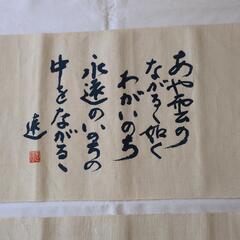 あや雲の
ながるゝ如く
わがいのち
永遠のいのちの
中をながるゝ
遠